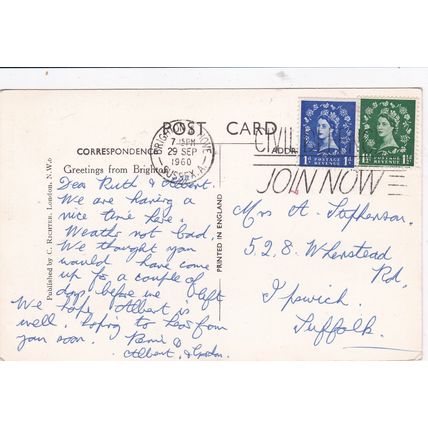 POST CARD
BRIGHTON & HOVE
7-15PM
29 SEP
1960
SUSSEX. A
CIVIL
JOIN NOW
1D POSTAGE REVENUE 1D
POSTAGE REVENUE
CORRESPONDENCE
ADDR
Greetings from Brighton
Published by C. RICHTER, London, N.W.
PRINTED IN ENGLAND
Dear Ruth & Albert.
We are having a
nice time here.
Weaths not bad.
We thought you
would have come
up for a couple of
days before we left
We hope Albert is
well. hoping to hear from
you soon.
Albert, &
Mrs A. Stephenson.
528. Wherstead
Rd.
Ipswich.
Suffolk.